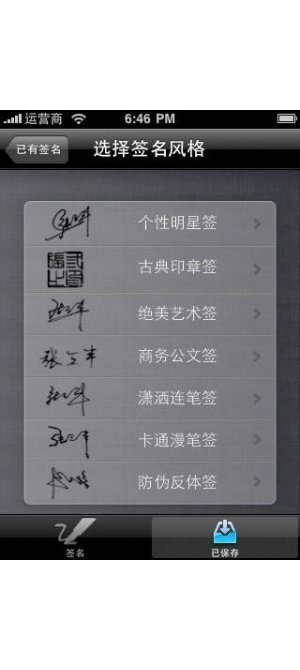 运营商 6:46 PM
已有签名 选择签名风格
个性明星签
古典印章签
绝美艺术签
张三丰 商务公文签
潇洒连笔签
卡通漫笔签
防伪反体签
签名 已保存